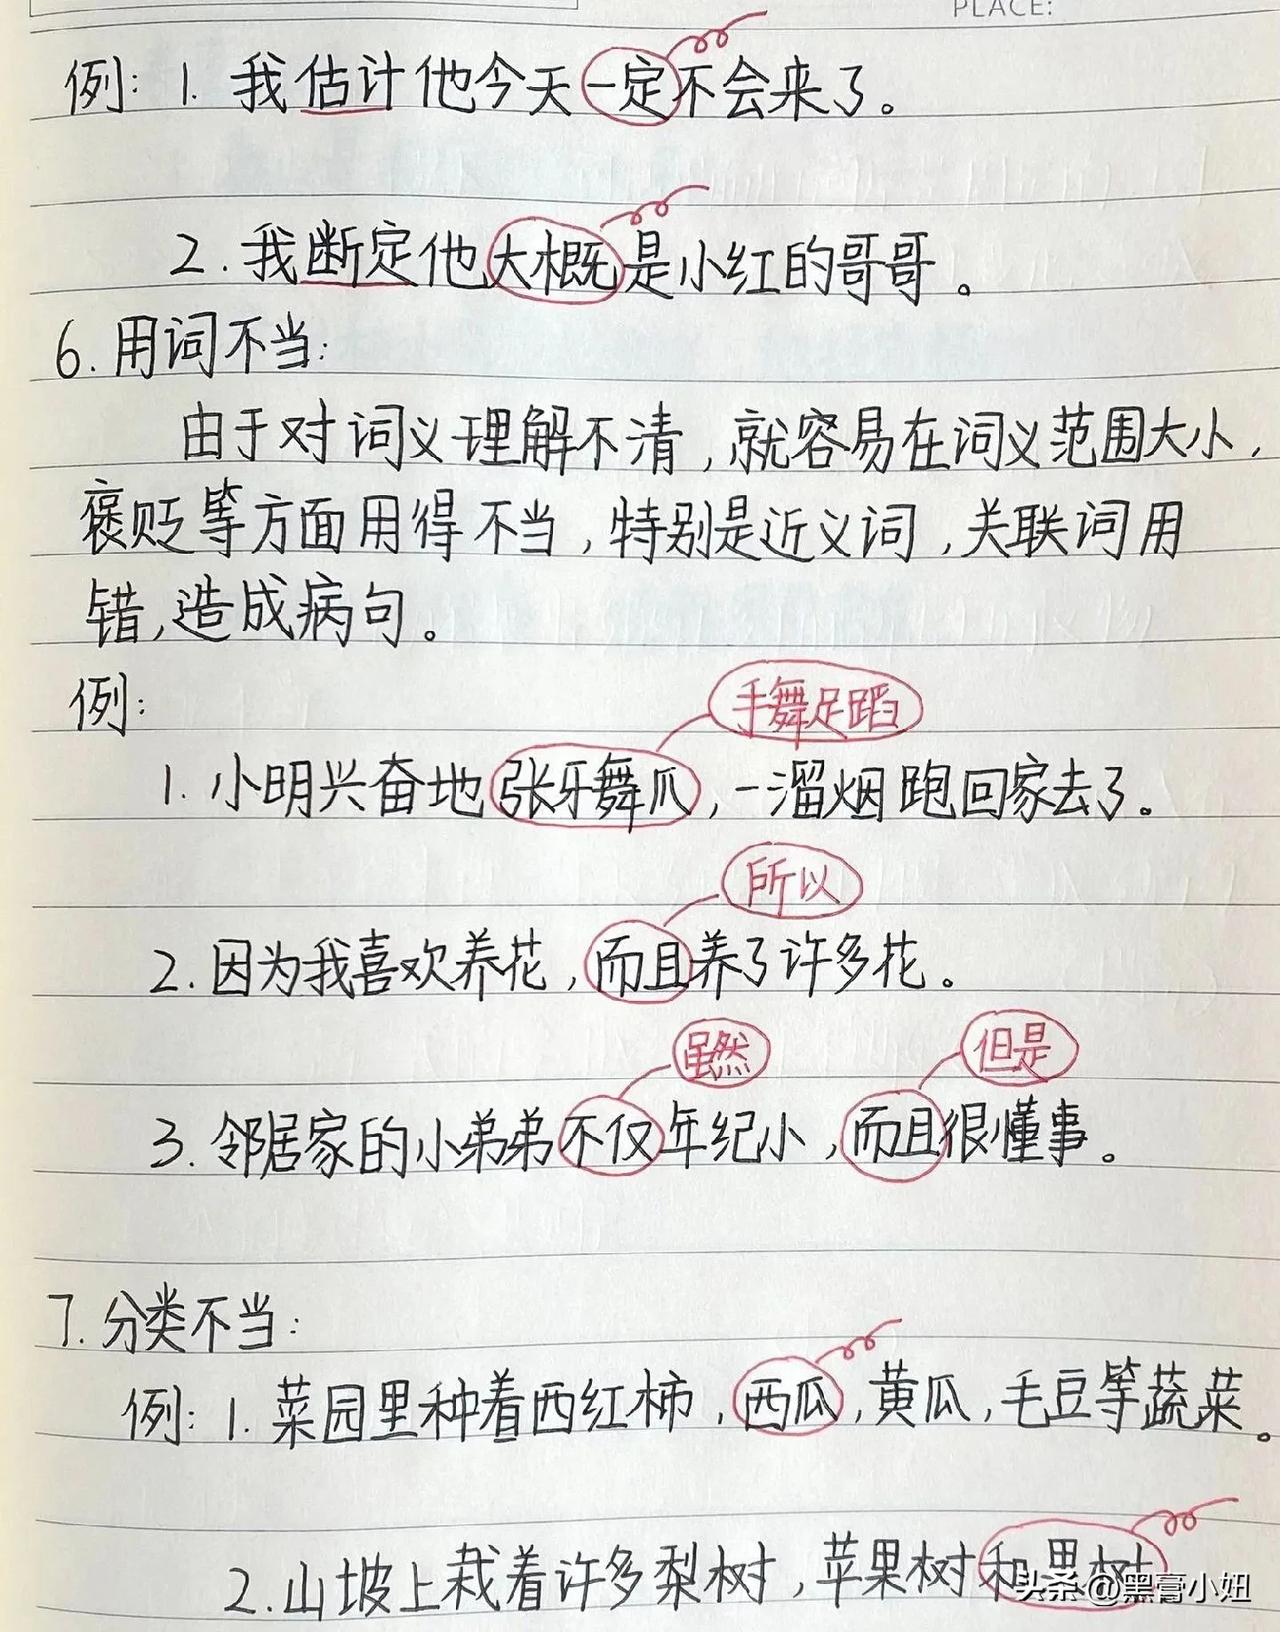 PLACE:
例：1. 我估计他今天一定不会来了。
2. 我断定他大概是小红的哥哥。
6. 用词不当：
由于对词义理解不清，就容易在词义范围大小，
褒贬等方面用得不当，特别是近义词，关联词用
错，造成病句。
例：
手舞足蹈
1. 小明兴奋地张牙舞爪，一溜烟跑回家去了。
所以
2. 因为我喜欢养花，而且养了许多花。
虽然 但是
3. 邻居家的小弟弟不仅年纪小，而且很懂事。
7. 分类不当：
例：1. 菜园里种着西红柿，西瓜，黄瓜，毛豆等蔬菜。
2. 山坡上栽着许多梨树，苹果树和果树
头条 @黑膏小妞